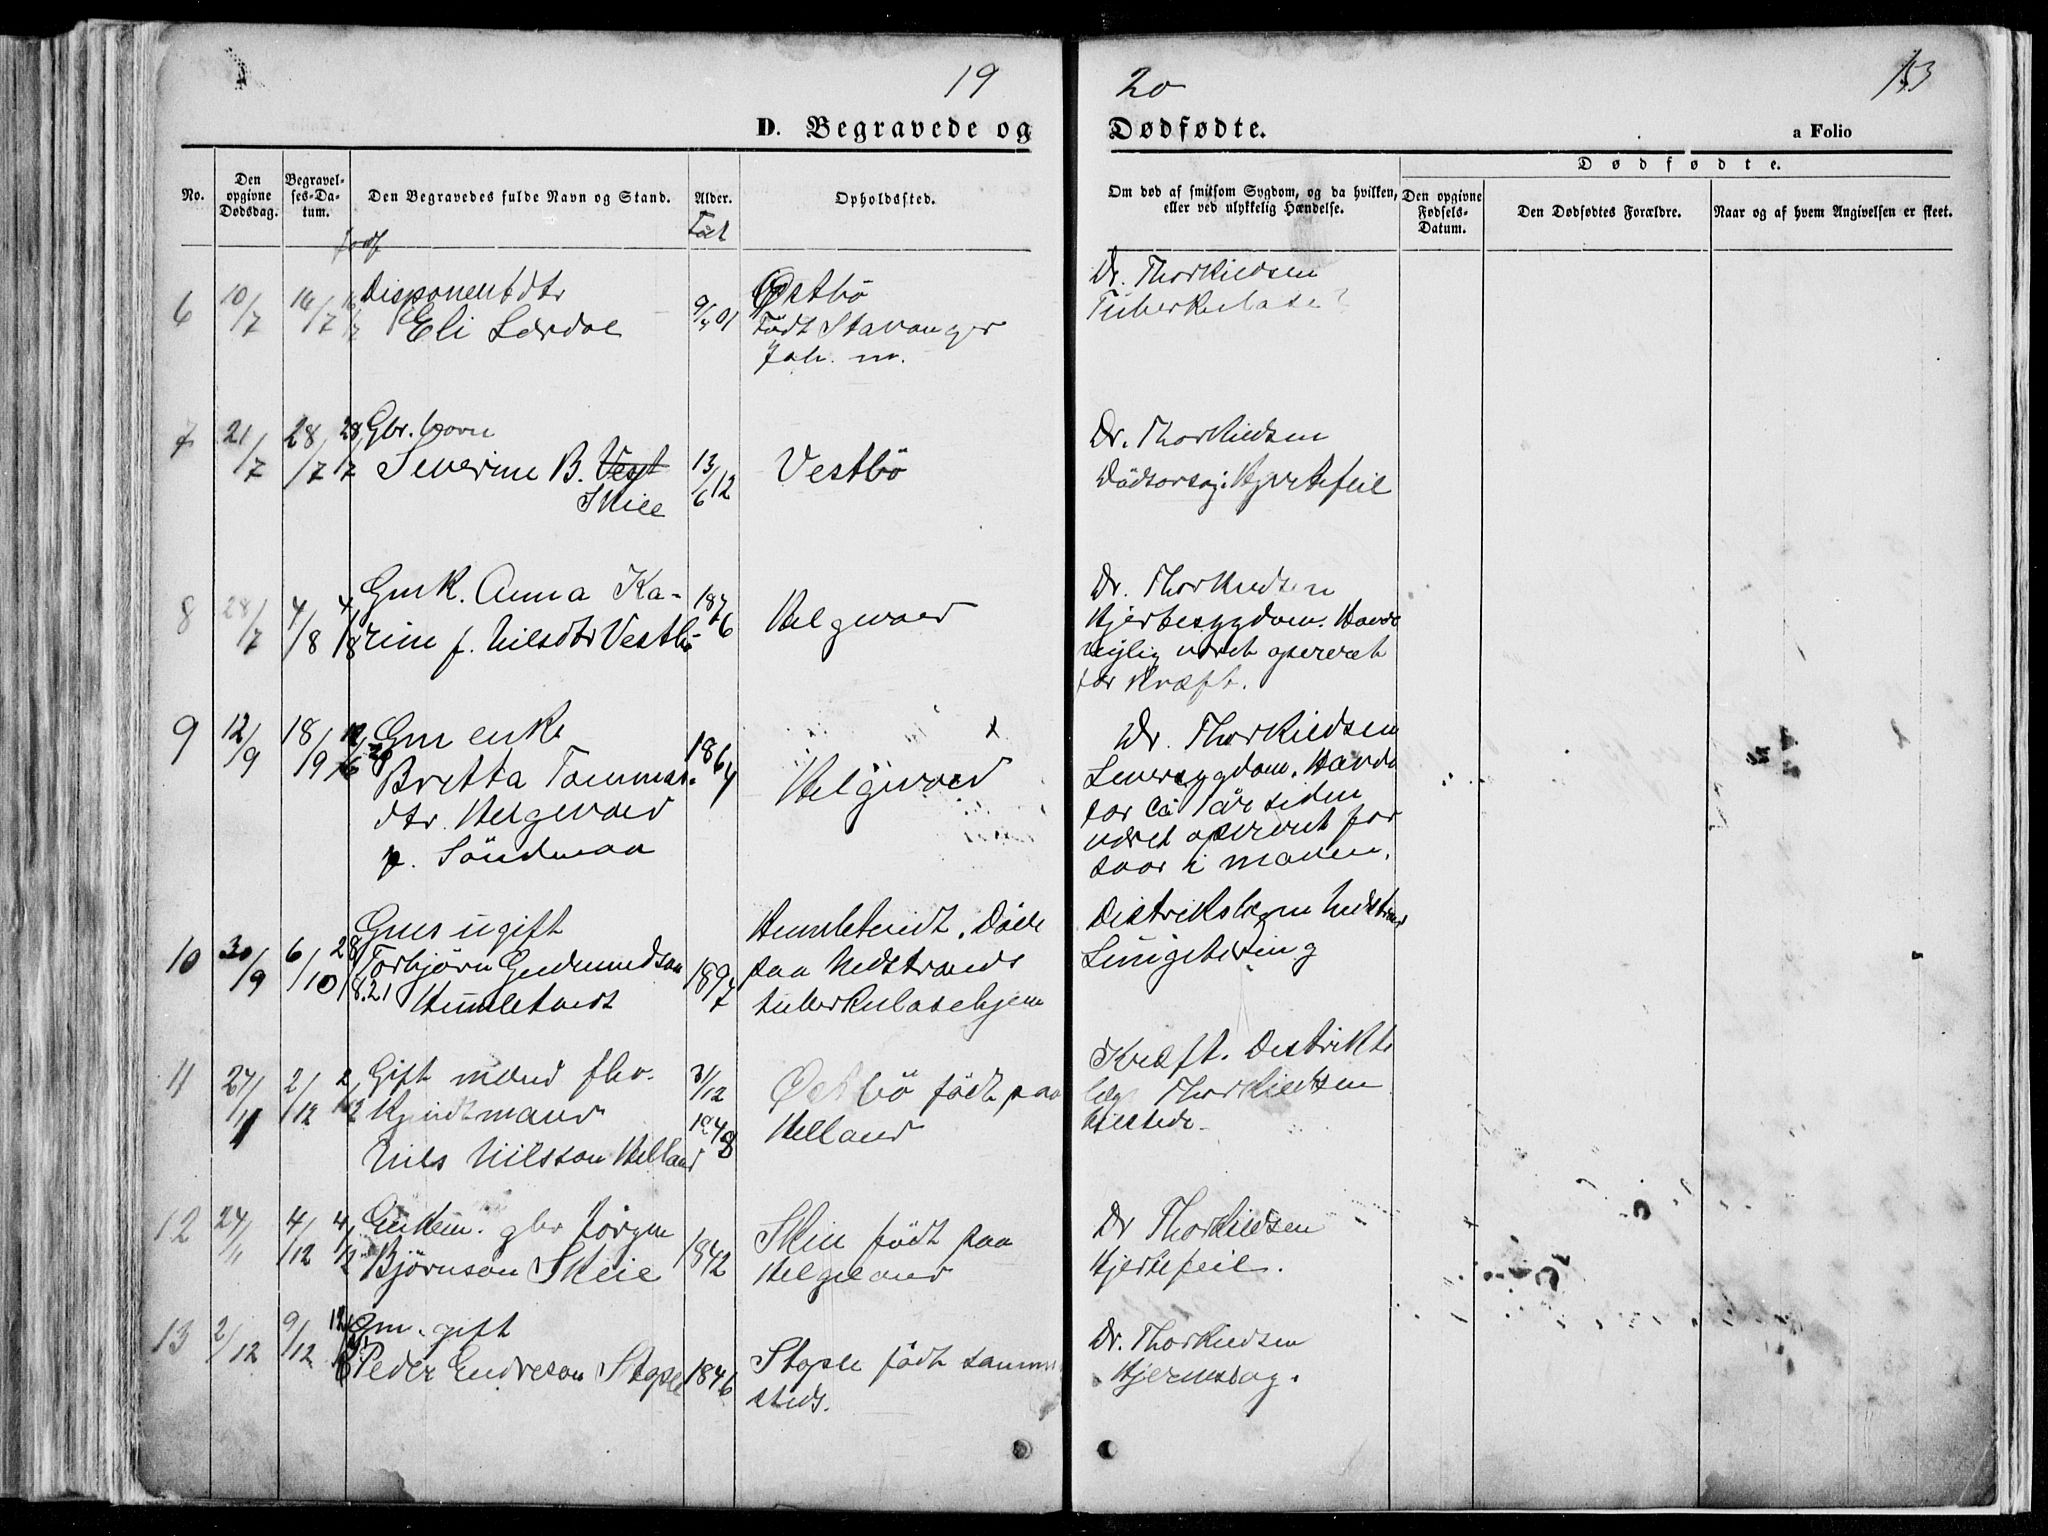 19
20
153
D. Begravede og
Dødfødte.
a Folio
No.
Den opgivne Dødsdag.
Begravelses-Datum.
Den Begravedes fulde Navn og Stand.
Alder.
Opholdssted.
Om død af smitsom Sygdom, og da hvilken, eller ved ulykkelig Hændelse.
Dødfødte.
Den opgivne Fødsels-Datum.
Den Dødfødtes Forældre.
Naar og af hvem Angivelsen er skeet.
Født
6 10/7 14/7
Disponent dtr
Eli Lærdal
9/4 01
Østbö
Født Stavanger
Dr. Thorkildsen
Tuberkulose?
7 21/7 28/7 28/7
Gbr. barn
Severine B. Vest
Skeie
13/6 12
Vestbö
Dr. Thorkildsen
Dödsorsag: Hjertefeil
8 28/7 4/8 4/8
Gmk. Anna Ka-
rine f. Nilsdtr Vestbö
1876
Helgevold
Dr. Thorkildsen
Hjertesygdom. Havde
nylig været opereret
for Kræft.
9 12/9 18/9
Gm enke
Britta Tommas
dtr. Helgevold
f. Söndenaa
1864
Helgevold
Dr. Thorkildsen
Leversygdom. Havde
for ca 1 år siden
været opereret for
saar i maven.
10 30/9 6/10
Gms ugift
Torbjörn Gudmundson
Humletvedt
1897
Humletvedt. Döde
paa Nedstrands
tuberkulosehjem
Distriktslege Nedstrand
Lungetæring
11 27/11 2/12 2/12
Gift mand fhv.
Nils Nilsson Helland
31/12
1848
Østbö født paa
Helland
Kræft. Distrikts
læge Thorkildsen
12 27/11 4/12 4/12
Enkem. gbr Jörgen
Björnson Skeie
1842
Skeie født paa
Helgeland
Dr Thorkildsen
Hjertefeil.
13 2/12 9/12
Gm. gift
Peder Endreson Stople
1846
Stople født samme
steds.
Dr. Thorkildsen
Hjerneslag.